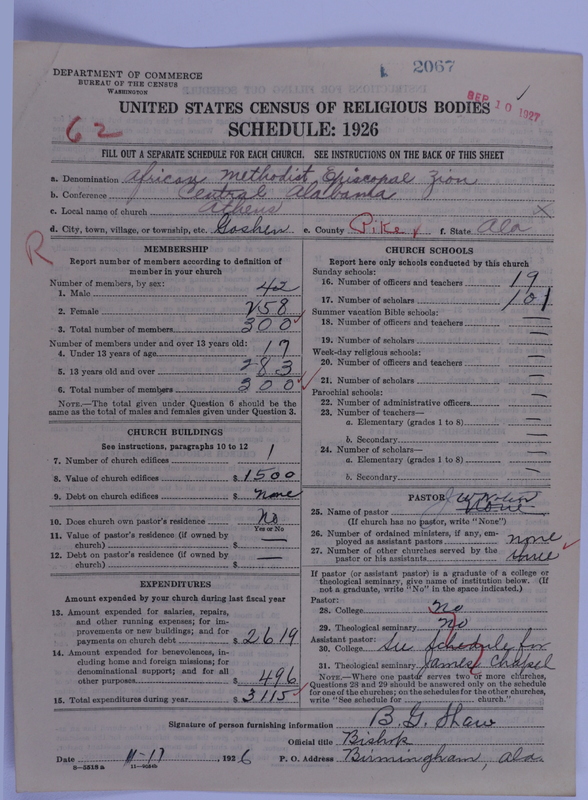 2067
DEPARTMENT OF COMMERCE
BUREAU OF THE CENSUS
WASHINGTON
SEP 10 1927
1
UNITED STATES CENSUS OF RELIGIOUS BODIES
62
SCHEDULE: 1926
FILL OUT A SEPARATE SCHEDULE FOR EACH CHURCH. SEE INSTRUCTIONS ON THE BACK OF THIS SHEET
a. Denomination African Methodist Episcopal Zion
b. Conference Central Alabama
c. Local name of church Athens
d. City, town, village, or township, etc. Goshen e. County Pike f. State Ala
R
MEMBERSHIP
Report number of members according to definition of
member in your church
Number of members, by sex:
1. Male 42
2. Female 258
3. Total number of members 300
Number of members under and over 13 years old:
4. Under 13 years of age 17
5. 13 years old and over 283
6. Total number of members 300
NOTE.—The total given under Question 6 should be the
same as the total of males and females given under Question 3.
CHURCH BUILDINGS
See instructions, paragraphs 10 to 12
7. Number of church edifices 1
8. Value of church edifices $ 1500
9. Debt on church edifices $ none
10. Does church own pastor's residence No
Yes or No
11. Value of pastor's residence (if owned by
church) $ —
12. Debt on pastor's residence (if owned by
church) $ —
EXPENDITURES
Amount expended by your church during last fiscal year
13. Amount expended for salaries, repairs,
and other running expenses; for im-
provements or new buildings; and for
payments on church debt $ 2619
14. Amount expended for benevolences, in-
cluding home and foreign missions; for
denominational support; and for all
other purposes $ 496
15. Total expenditures during year $ 3115
CHURCH SCHOOLS
Report here only schools conducted by this church
Sunday schools:
16. Number of officers and teachers 19
17. Number of scholars 101
Summer vacation Bible schools:
18. Number of officers and teachers —
19. Number of scholars —
Week-day religious schools:
20. Number of officers and teachers —
21. Number of scholars —
Parochial schools:
22. Number of administrative officers —
23. Number of teachers—
a. Elementary (grades 1 to 8) —
b. Secondary —
24. Number of scholars—
a. Elementary (grades 1 to 8) —
b. Secondary —
PASTOR
25. Name of pastor None
(If church has no pastor, write "None")
26. Number of ordained ministers, if any, em-
ployed as assistant pastors none
27. Number of other churches served by the
pastor or his assistants
If pastor (or assistant pastor) is a graduate of a college or
theological seminary, give name of institution below. (If
not a graduate, write "No" in the space indicated.)
Pastor:
28. College No
29. Theological seminary No
Assistant pastor:
30. College See Schedule for
31. Theological seminary James Chapel
NOTE.—Where one pastor serves two or more churches,
Questions 28 and 29 should be answered only on the schedule
for one of the churches; on the schedules for the other churches,
write "See schedule for ............ church."
Signature of person furnishing information B. G. Shaw
Official title Bishop
Date 11-17, 1926 P. O. Address Birmingham, Ala.